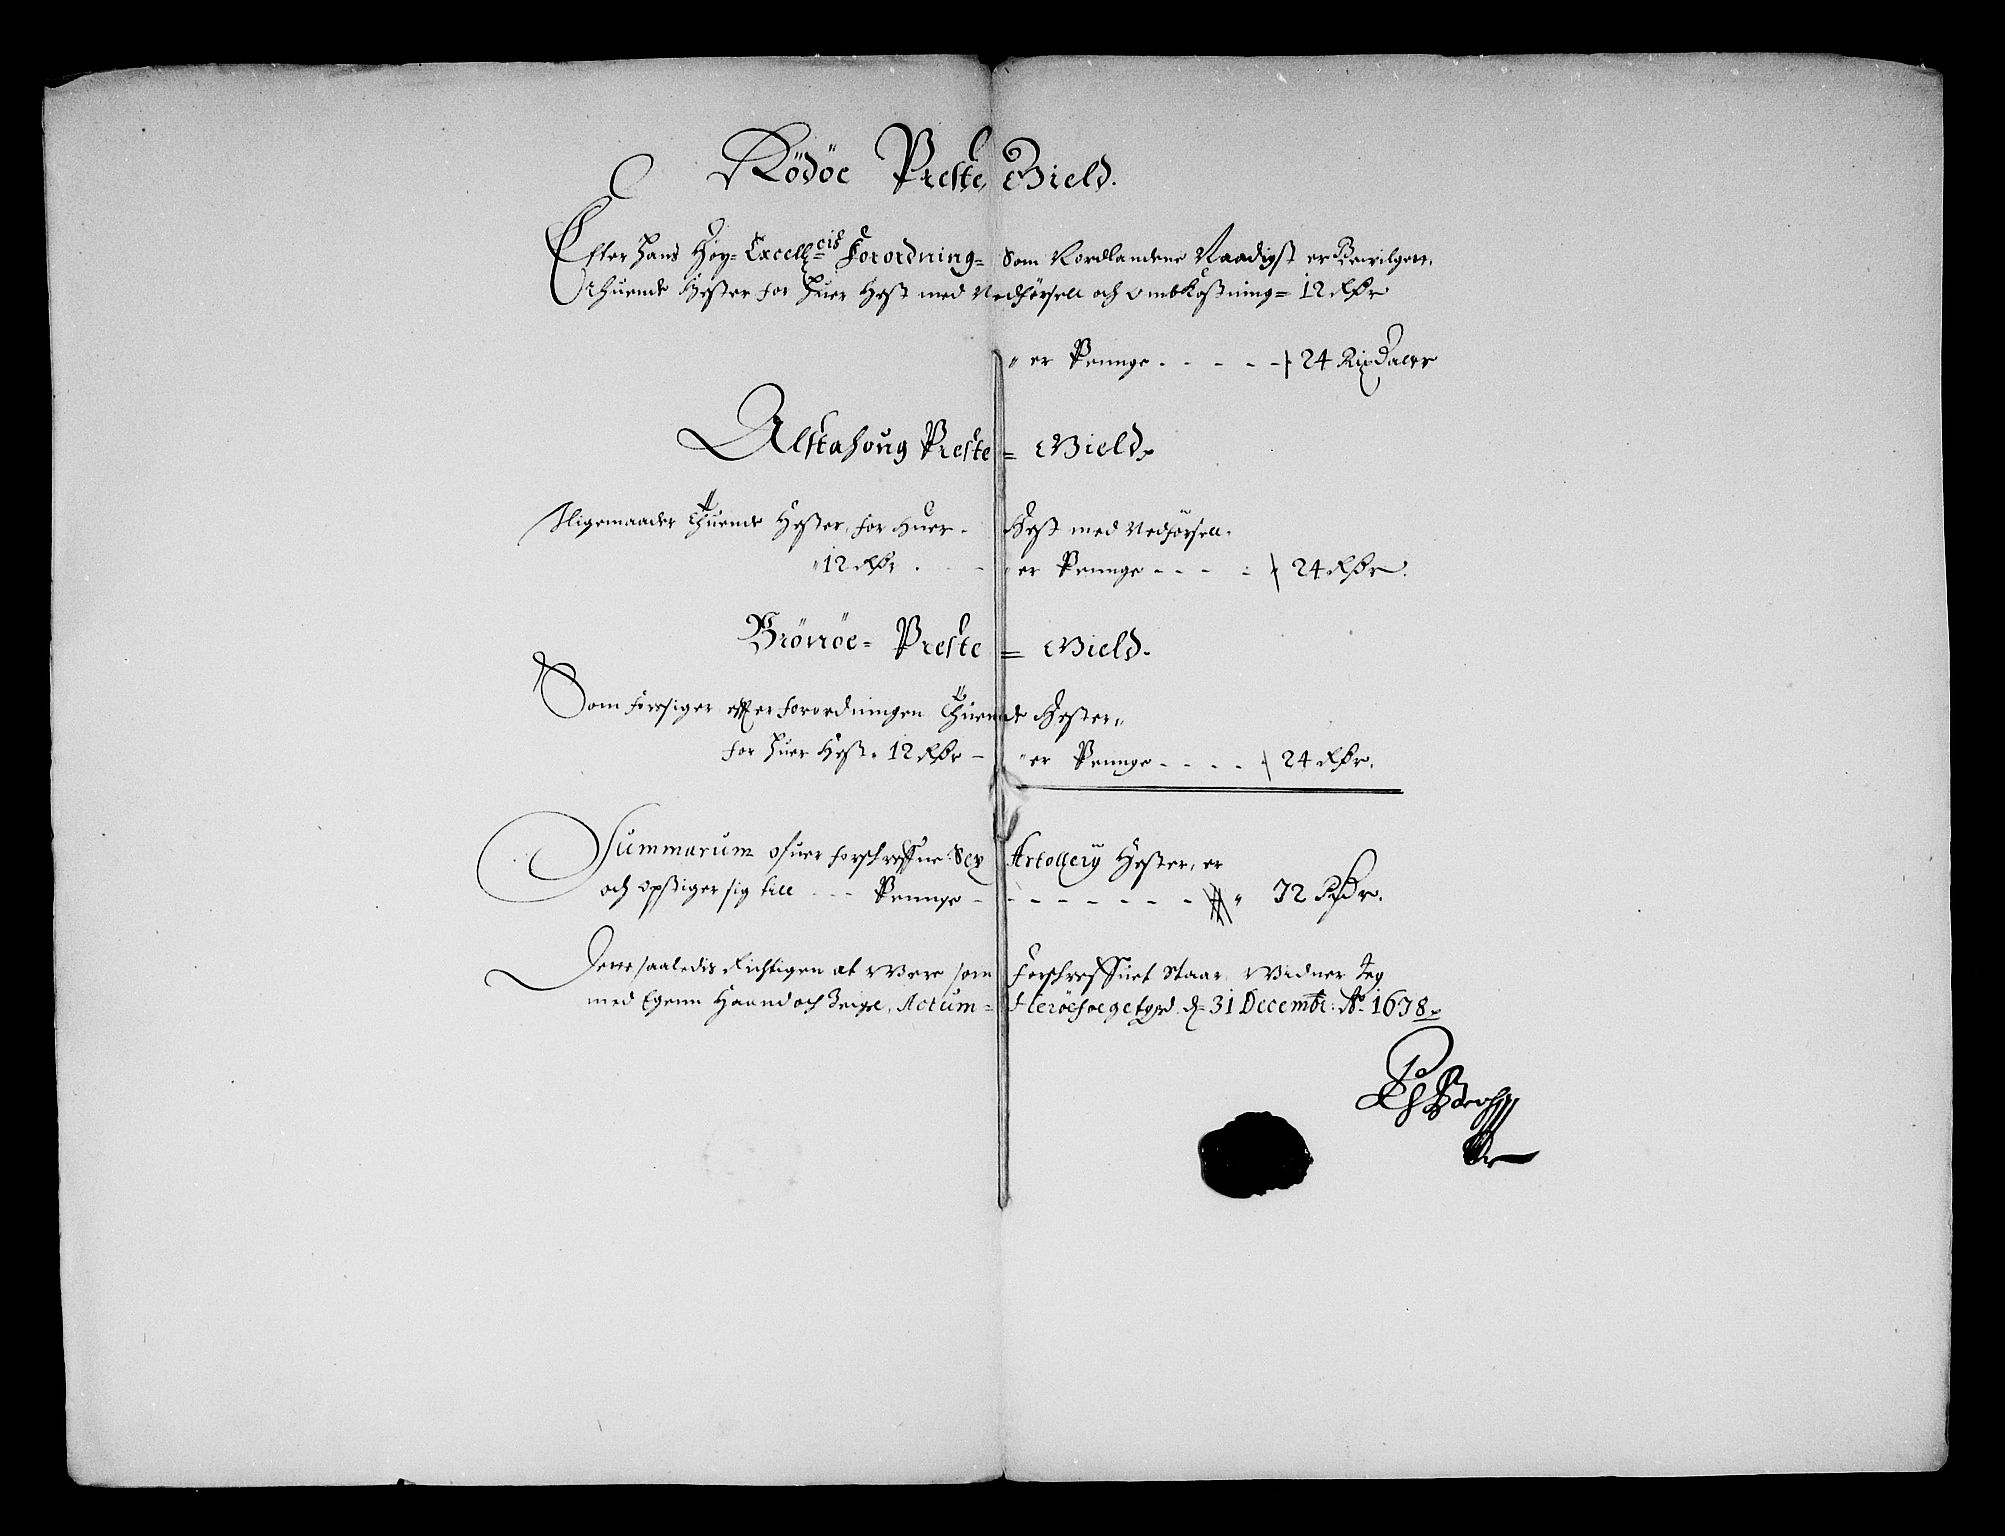 Rödöe Preste Gield.
Efter Hans Höy= Excell:cis Forordning= Som Nordlandene Naadigst er Bewilgett,
Thuende Hester for Huer Hest med Vedförsell och Ombkostning= 12 Rdr
er Penge - - - - - 24 Rix Daler
Alstahoug Preste = Gield.
Sligemaader Thuende Hester, for Huer - Hest med Vedförsell.
12 Rdr - - er Penge - - - - 24 Rdr.
Brönöe= Preste = Gield.
Som foresiger efter forordningen Thuende Hester,
for Huer Hest. 12 Rdr - er Penge - - - - 24 Rdr.
Summarum ofuer forschreffne Sex Artollery Hester, er
och opstiger sig till - - - Penge - - - - - - - - 72 Rdr.
Dette saaledis Richtigen at Were som Forschreffuet Staar. Widner Jeg
med Egenn Haand och Zeigl, Actum= Heröehoegetgrd. d= 31 Decembr: Ao 1678